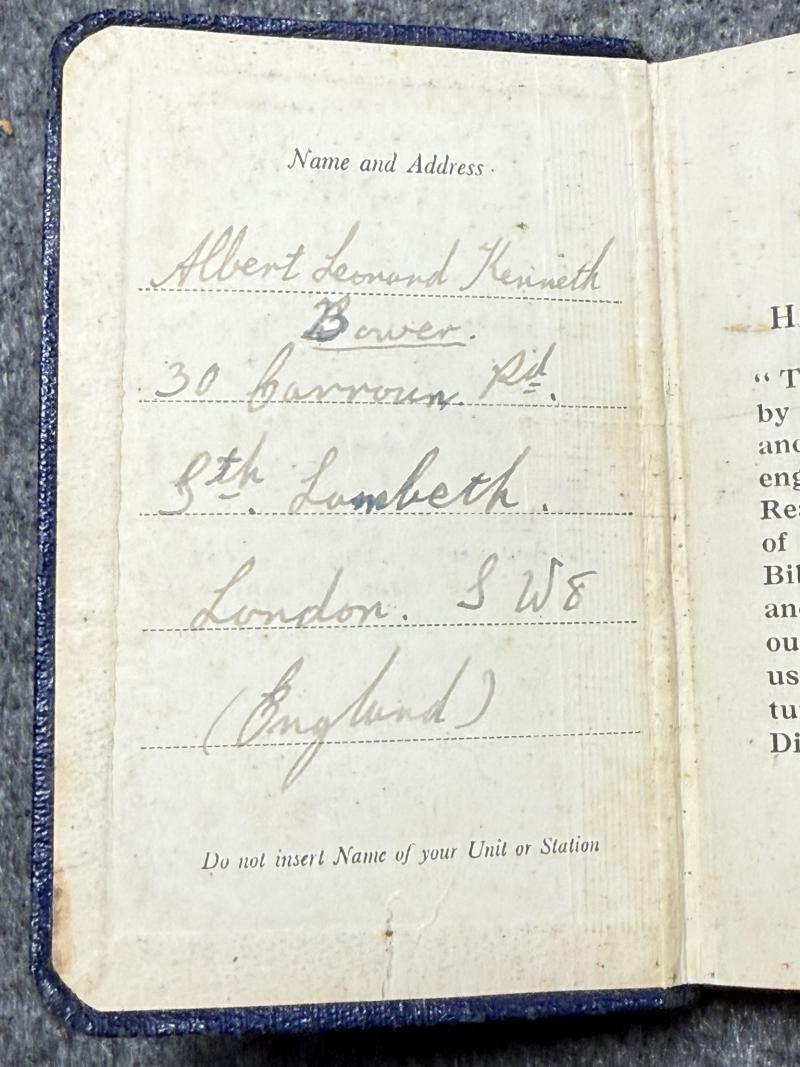 Name and Address.
Albert Leonard Kenneth
Bower.
30 Carroun Rd.
Sth. Lambeth.
London. S W 8
(England)
Do not insert Name of your Unit or Station
H
“ T
by
and
eng
Rea
of
Bib
and
ou
us
tu
Di